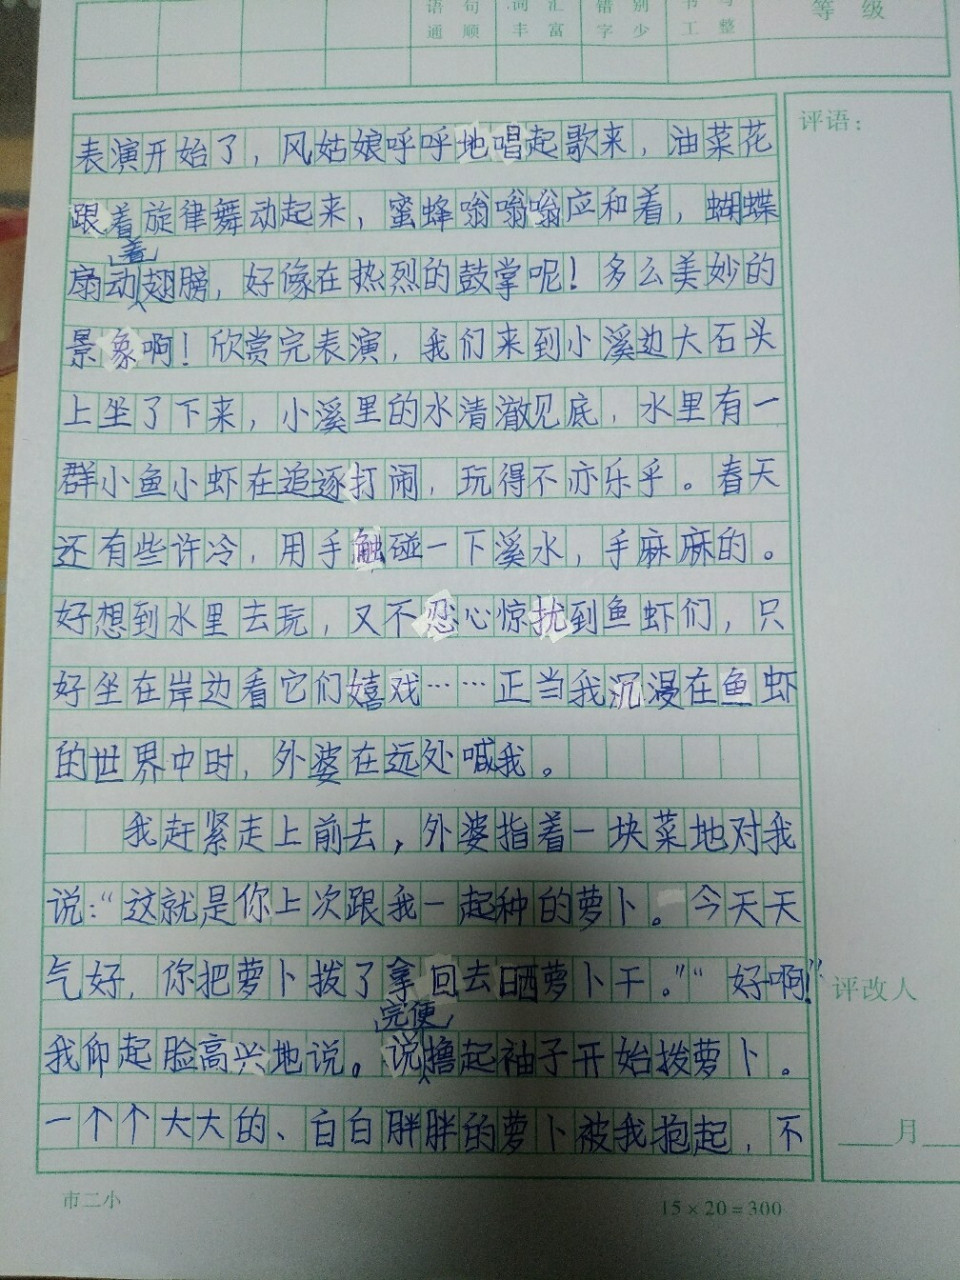 语句通顺 词汇丰富 错别字少 书写工整 等级
评语：
表演开始了，风姑娘呼呼地唱起歌来，油菜花
跟着旋律舞动起来，蜜蜂嗡嗡嗡应和着，蝴蝶
扇动着翅膀，好像在热烈的鼓掌呢！多么美妙的
景象啊！欣赏完表演，我们来到小溪边大石头
上坐了下来，小溪里的水清澈见底，水里有一
群小鱼小虾在追逐打闹，玩得不亦乐乎。春天
还有些许冷，用手触碰一下溪水，手麻麻的。
好想到水里去玩，又不忍心惊扰到鱼虾们，只
好坐在岸边看它们嬉戏……正当我沉漫在鱼虾
的世界中时，外婆在远处喊我。
我赶紧走上前去，外婆指着一块菜地对我
说：“这就是你上次跟我一起种的萝卜。今天天
气好，你把萝卜拨了拿回去晒萝卜干。”“好啊！”
我仰起脸高兴地说。说完便撸起袖子开始拨萝卜。
一个个大大的、白白胖胖的萝卜被我抱起，不
评改人
月
市二小
15×20=300